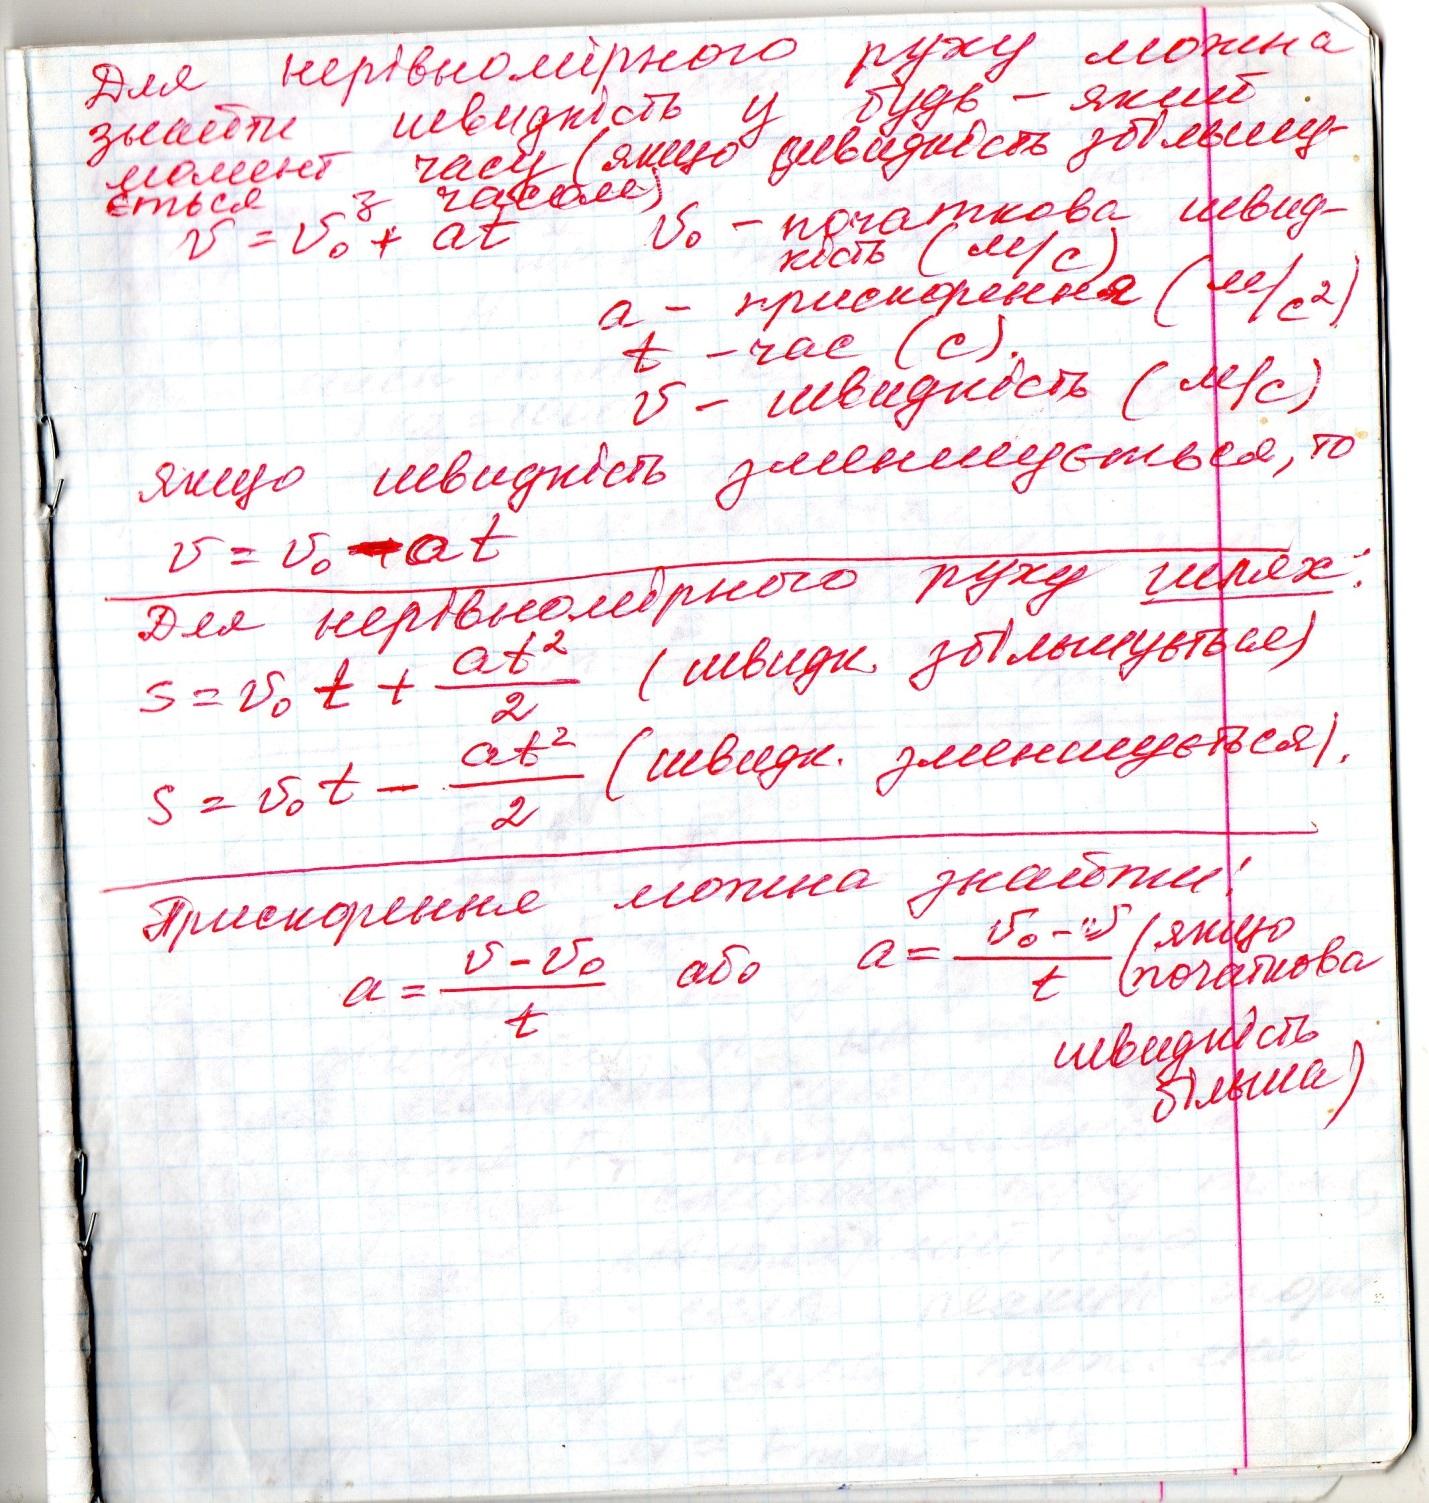 Для нерівномірного руху можна
знайти швидкість у будь-який
момент часу (якщо швидкість збільшу-
ється з часом)
v = v₀ + at v₀ - початкова швид-
кість (м/с)
a - прискорення (м/с²)
t - час (с).
v - швидкість (м/с)
якщо швидкість зменшується, то
v = v₀ - at
Для нерівномірного руху шлях:
s = v₀t + at²/2 (швидк. збільшується)
s = v₀t - at²/2 (швидк. зменшується).
Прискорення можна знайти:
a = v - v₀/t або a = v₀ - v/t (якщо
початкова
швидкість
більша)